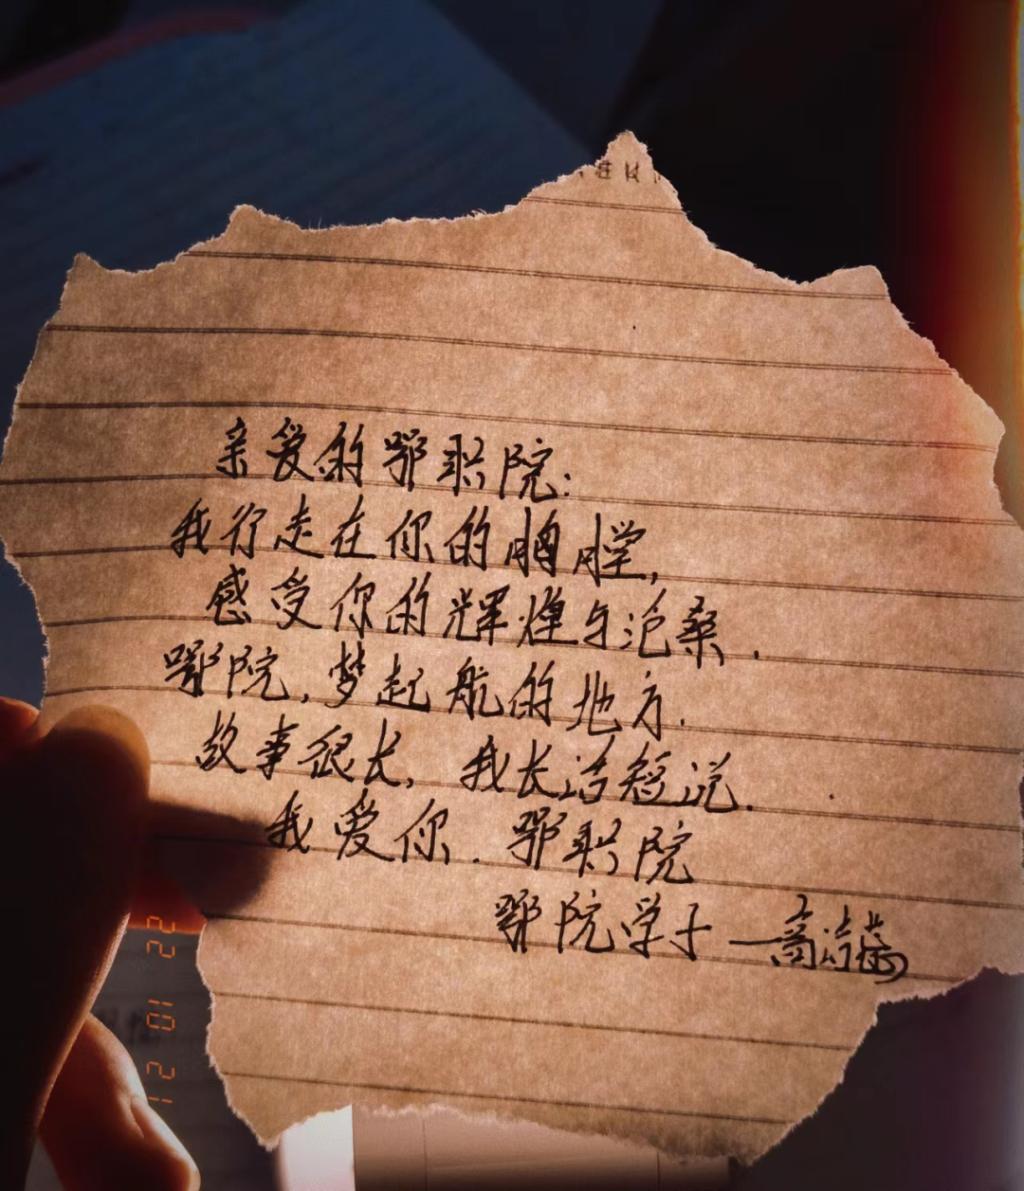 亲爱的鄂职院：
我行走在你的胸膛，
感受你的辉煌与沧桑.
鄂院,梦起航的地方.
故事很长,我长话短说.
我爱你.鄂职院
鄂院学子—高
22 10 21